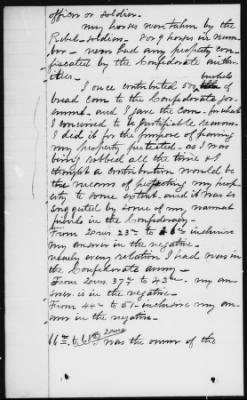 officer or soldier.
My horses were taken by the
Rebel soldiers. 8 or 9 horses in num-
ber - never had any property con-
fiscated by the Confederate auth-
orities -
I once contributed 500 bushels of
bread corn to the Confederate gov-
ernment. and I gave the corn - for what
I conceived to be justifiable reasons.
I did it for the purpose of having
my property protected - as I was
being robbed all the time &
thought a contribution would be
the means of protecting my prop-
erty to some extent. and it was
suggested by some of my warmest
friends in the Confederacy -
From 23rd to inclusive
my answer in the negative -
nearly every relation I had was in
the Confederate army -
From 37th to 43rd - my an-
swer is in the negative -
From 44th to 51 - inclusive my an-
swer in the negative -
was the owner of the